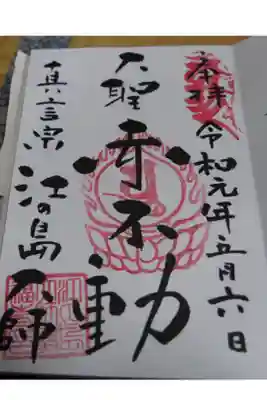 奉拝
令和元年五月六日
大聖
赤不動
真言宗
江の島
大師